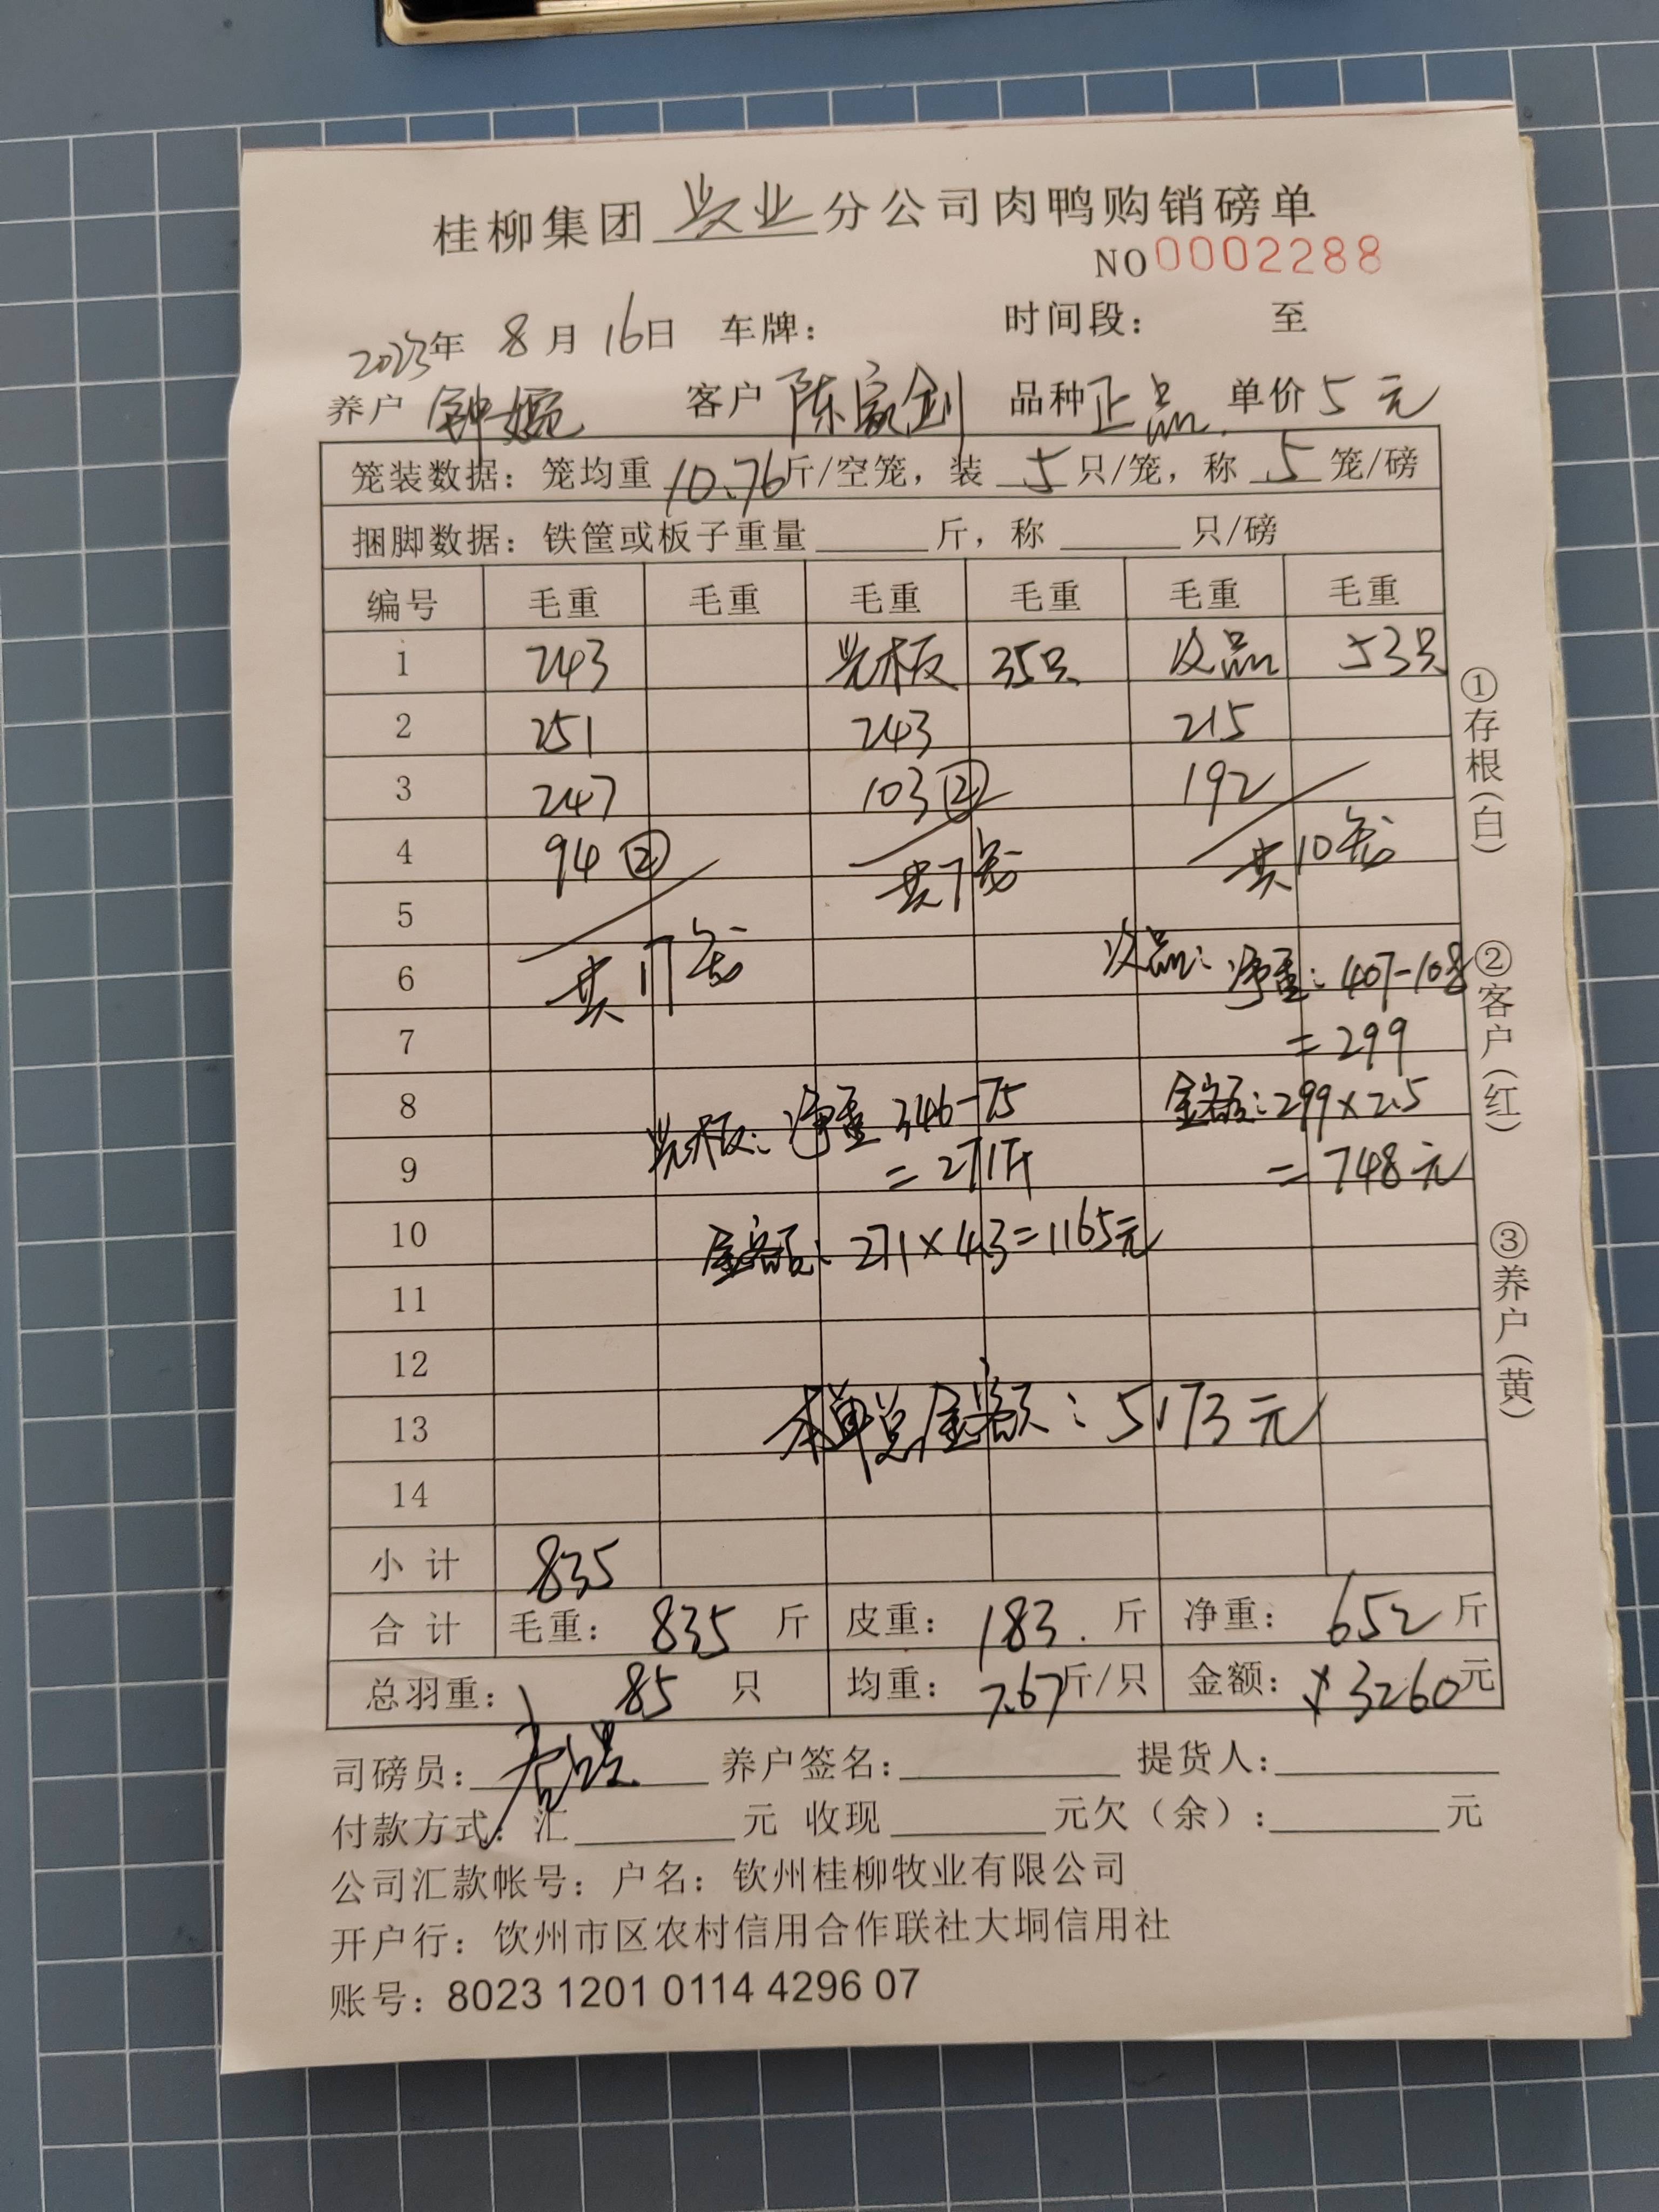 桂柳集团 兴业 分公司肉鸭购销磅单
NO 0002288
2023年 8月 16日 车牌： 时间段： 至
养户 钟婉 客户 陈家剑 品种 正品 单价 5 元
笼装数据：笼均重 10.76 斤/空笼，装 5 只/笼，称 5 笼/磅
捆脚数据：铁筐或板子重量 斤，称 只/磅
编号 毛重 毛重 毛重 毛重 毛重 毛重
1 243 光板 35只 次品 53只
2 251 243 215
3 247 103② 192
4 94② 共7笼 共10笼
5
6 共17笼 次品：净重：407-108
7 =299
8 光板：净重 346-75 金额：299×2.5
9 =271斤 =748元
10 金额：271×4.3=1165元
11
12
13 本单总金额：5173元
14
小计 835
合计 毛重： 835 斤 皮重： 183. 斤 净重： 652 斤
总羽重： 85 只 均重： 7.67 斤/只 金额： ¥3260 元
司磅员： 养户签名： 提货人：
付款方式：汇 元 收现 元欠（余）： 元
公司汇款帐号：户名：钦州桂柳牧业有限公司
开户行：饮州市区农村信用合作联社大垌信用社
账号：8023 1201 0114 4296 07
①存根（白）
②客户（红）
③养户（黄）